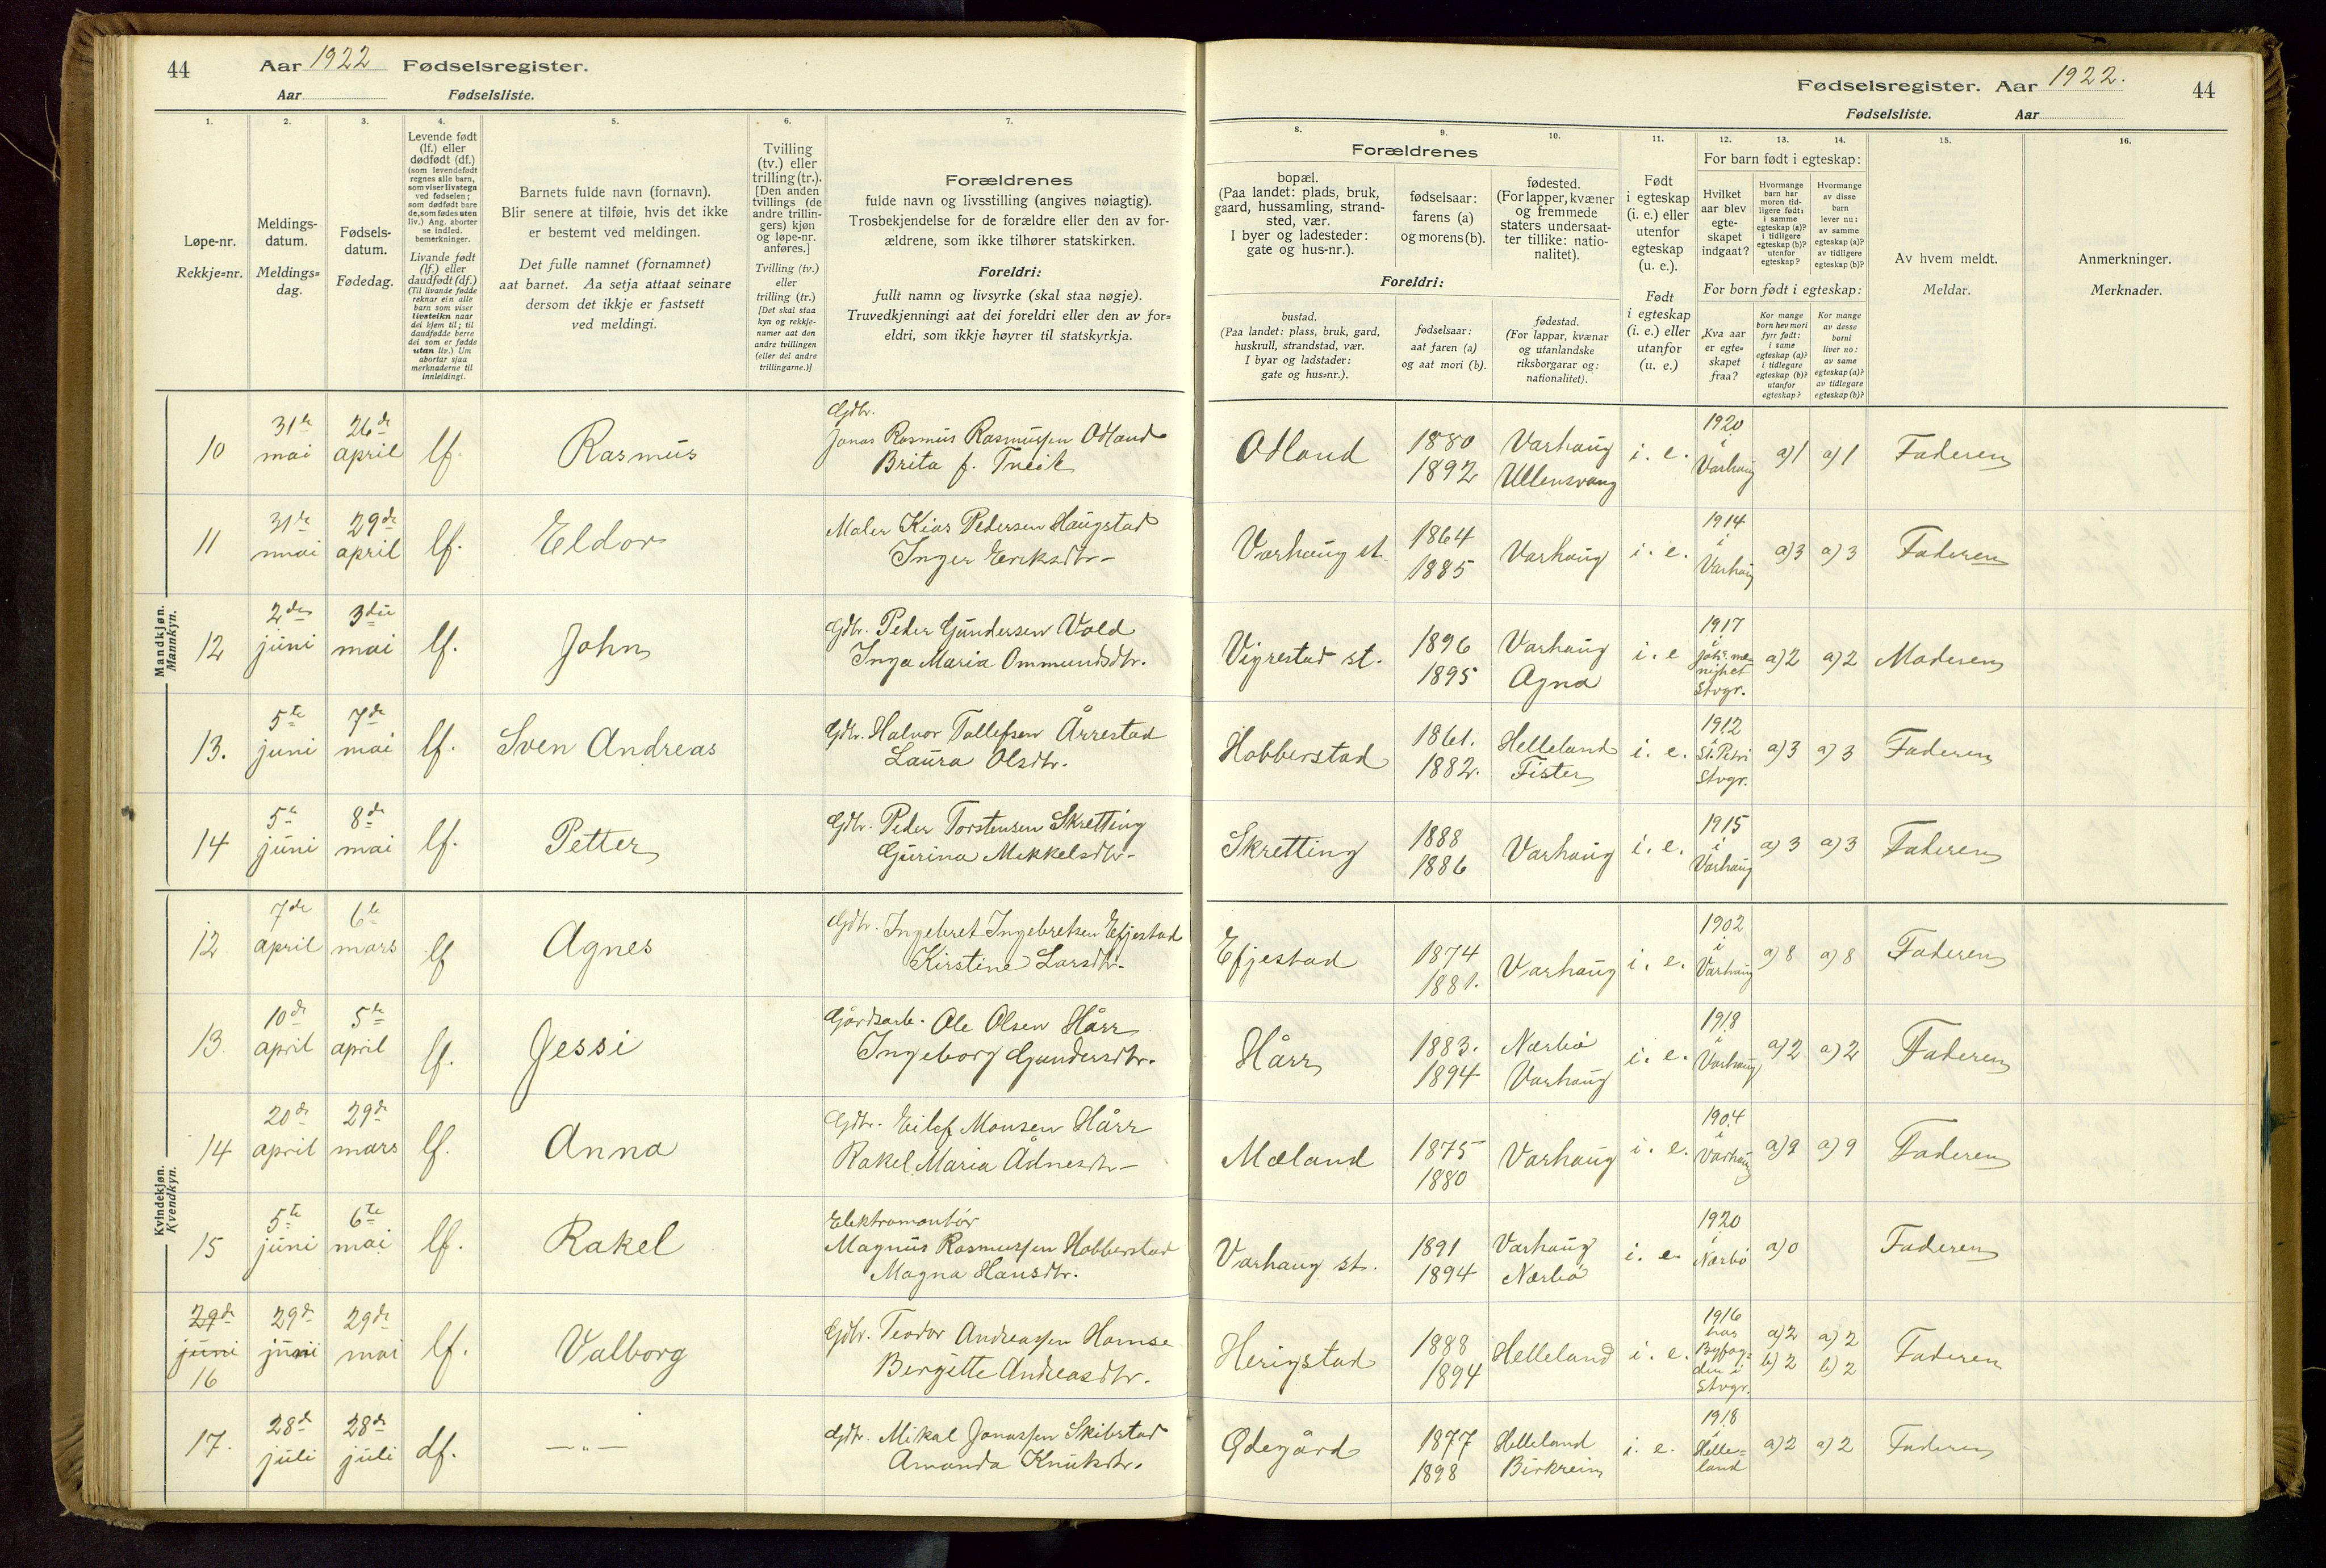 44 Aar 1922 Fødselsregister.
Aar Fødselsliste.
Fødselsregister. Aar 1922. 44
Fødselsliste. Aar
1. 2. 3. 4. 5. 6. 7.
Løpe-nr.
Rekkje=nr.
Meldings-
datum.
Meldings=
dag.
Fødsels-
datum.
Fødedag.
Levende født
(lf.) eller
dødfødt (df.)
(som levendefødt
regnes alle barn,
som viser livstegn
ved fødselen;
som dødfødt bare
de, som fødes uten
liv.) Ang. aborter
se indled.
bemerkninger.
Livande født
(lf.) eller
daudfødt (df.)
(Til livande fødde
reknar ein alle
barn som viser
livsteikn naar
dei kjem til; til
daudfødde berre
dei som er fødde
utan liv.) Um
abortar sjaa
merknaderne til
innleidingi.
Barnets fulde navn (fornavn).
Blir senere at tilføie, hvis det ikke
er bestemt ved meldingen.
Det fulle namnet (fornamnet)
aat barnet. Aa setja attaat seinare
dersom det ikkje er fastsett
ved meldingi.
Tvilling
(tv.) eller
trilling (tr.).
[Den anden
tvillings (de
andre trillin-
gers) kjøn
og løpe-nr.
anføres.]
Tvilling (tv.)
eller
trilling (tr.)
[Det skal staa
kyn og rekkje-
numer aat den
andre tvillingen
(eller dei andre
trillingarne.)]
Forældrenes
fulde navn og livsstilling (angives nøiagtig).
Trosbekjendelse for de forældre eller den av for-
ældrene, som ikke tilhører statskirken.
Foreldri:
fullt namn og livsyrke (skal staa nøgje).
Truvedkjenningi aat dei foreldri eller den av for=
eldri, som ikkje høyrer til statskyrkja.
8. 9. 10. 11. 12. 13. 14. 15. 16.
Forældrenes
bopæl.
(Paa landet: plads, bruk,
gaard, hussamling, strand-
sted, vær.
I byer og ladesteder:
gate og hus-nr.).
fødselsaar:
farens (a)
og morens (b).
fødested.
(For lapper, kvæner
og fremmede
staters undersaat-
ter tillike: natio-
nalitet).
Foreldri:
bustad.
(Paa landet: plass, bruk, gard,
huskrull, strandstad, vær.
I byar og ladstader:
gate og hus=nr.).
fødselsaar:
aat faren (a)
og aat mori (b).
fødestad.
(For lappar, kvænar
og utanlandske
riksborgarar og:
nationalitet).
Født
i egteskap
(i. e.) eller
utenfor
egteskap
(u. e.).
Født
i egteskap
(i. e.) eller
utanfor
(u. e.)
For barn født i egteskap:
Hvilket
aar blev
egte-
skapet
indgaat?
Hvormange
barn har
moren tid-
ligere født:
i samme
egteskap (a)?
i tidligere
egteskap (b)?
utenfor
egteskap?
Hvormange
av disse
barn
lever nu:
av samme
egteskap (a)?
av tidligere
egteskap (b)?
For born født i egteskap:
Kva aar
er egte-
skapet
fraa?
Kor mange
born hev mori
fyrr født:
i same
egteskap (a)?
i tidlegare
egteskap (b)?
utanfor
egteskap?
Kor mange
av desse
borni
liver no:
av same
egteskap (a)?
av tidlegare
egteskap (b)?
Av hvem meldt.
Meldar.
Anmerkninger.
Merknader.
Mandkjøn.
Mannkyn.
10 31te mai 26de april lf. Rasmus
Gdbr.
Jonas Rasmus Rasmussen Odland
Brita f. Tveit
Odland 1880 1892 Varhaug Ullensvang i. e. 1920 i Varhaug a)1 a)1 Faderen
11 31te mai 29de april lf. Eldor
Maler Kias Pedersen Haugstad
Inger Eriksdtr.
Varhaug st. 1864 1885 Varhaug i. e. 1914 i Varhaug a)3 a)3 Faderen
12 2den juni 3die mai lf. John
Gdbr. Peder Gundersen Vold
Inga Maria Ommundsdtr.
Vigrestad st. 1896 1895 Varhaug Ogna i. e 1917 i joh.s me-
nighet
Stvgr. a)2 a)2 Moderen
13. 5te juni 7de mai lf. Sven Andreas
Gdbr. Halvor Tollefsen Årrestad
Laura Olsdtr.
Hobberstad 1861. 1882. Helleland Fister i. e. 1912 i St. Petri Stvgr. a)3 a)3 Faderen
14 5te juni 8de mai lf. Petter
Gdbr. Peder Torstensen Skretting
Gurina Mikkelsdtr.
Skretting 1888 1886 Varhaug i. e. 1915 i Varhaug a)3 a)3 Faderen
Kvindekjøn.
Kvendkyn.
12 7de april 6te mars lf Agnes
Gdbr. Ingebret Ingebretsen Efjestad
Kirstine Larsdtr.
Efjestad 1874 1881. Varhaug i. e. 1902 i Varhaug a)8 a)8 Faderen
13. 10de april 5te april lf. Jessi
Gårdsarb. Ole Olsen Hårr
Ingeborg Gundersdtr.
Hårr 1883. 1894 Nærbø Varhaug i. e. 1918 i Varhaug a)2 a)2 Faderen
14 20de april 29de mars lf. Anna
Gdbr. Eilef Monsen Hårr
Rakel Maria Ådnesdtr.
Mæland 1875 1880 Varhaug i. e. 1904 i Varhaug a)9 a)9 Faderen
15 5te juni 6te mai lf. Rakel
Elektromontör
Magnus Rasmussen Hobberstad
Magna Hansdtr.
Varhaug st. 1891 1894 Varhaug Nærbø i. e. 1920 i Nærbø a)0 Faderen
29de juni
16 29de juni 29de mai lf. Valborg
Gdbr. Teodor Andreassen Homse
Bergitte Andreasdtr.
Herigstad 1888 1894 Helleland i. e. 1916 hos Byfog-
den i
Stvgr. a)2 b)2 a)2 b)2 Faderen
17. 28de juli 28de juli df. — „ —
Gdbr. Mikal Jonassen Skibstad
Amanda Knutsdtr.
Ødegård 1877 1898 Helleland Birkreim i. e. 1918 i Helle-
land a)2 a)2 Faderen